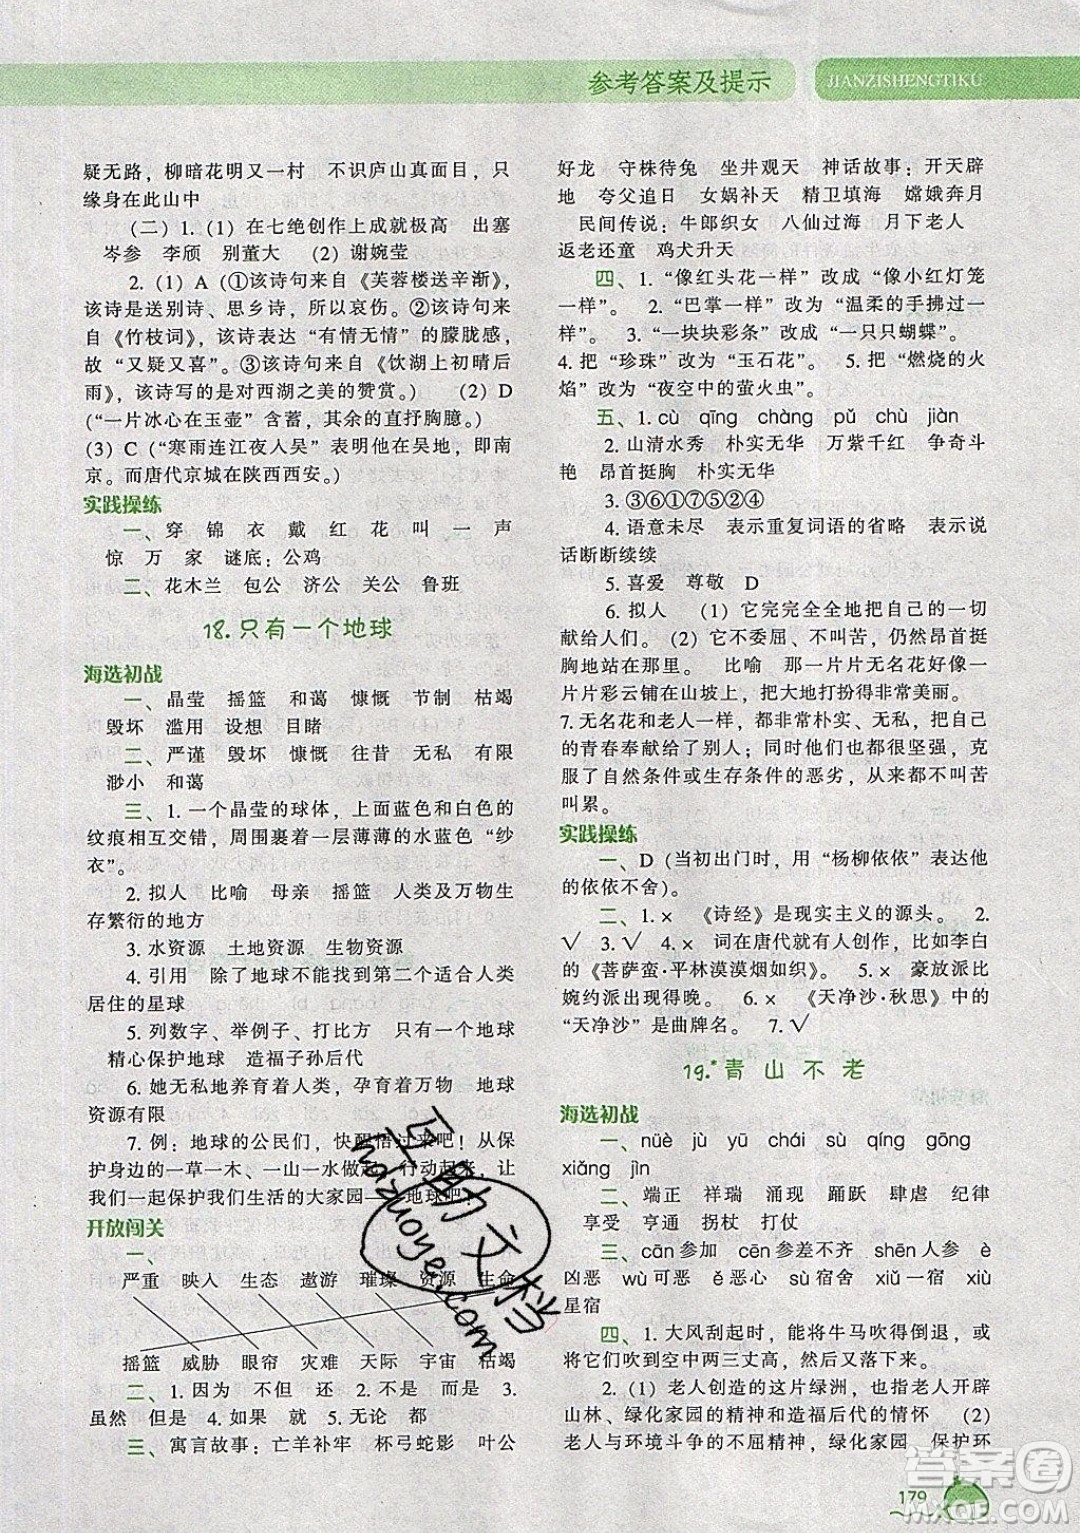 参考答案及提示
JIANZISHENGTIKU
疑无路，柳暗花明又一村　不识庐山真面目，只
缘身在此山中
（二）1.(1) 在七绝创作上成就极高　出塞
岑参　李颀　别董大　(2) 谢婉莹
2. (1) A (①该诗句来自《芙蓉楼送辛渐》，
该诗是送别诗、思乡诗，所以哀伤。②该诗句来
自《竹枝词》，该诗表达“有情无情”的朦胧感，
故“又疑又喜”。③该诗句来自《饮湖上初晴后
雨》，该诗写的是对西湖之美的赞赏。)　(2) D
(“一片冰心在玉壶”含蓄，其余的直抒胸臆。)
(3) C (“寒雨连江夜入吴”表明他在吴地，即南
京。而唐代京城在陕西西安。)
实践操练
一、穿　锦　衣　戴　红　花　叫　一　声
惊　万　家　谜底：公鸡
二、花木兰　包公　济公　关公　鲁班
18.只有一个地球
海选初战
一、晶莹　摇篮　和蔼　慷慨　节制　枯竭
毁坏　滥用　设想　目睹
二、严谨　毁坏　慷慨　往昔　无私　有限
渺小　和蔼
三、1. 一个晶莹的球体，上面蓝色和白色的
纹痕相互交错，周围裹着一层薄薄的水蓝色“纱
衣”。
2. 拟人　比喻　母亲　摇篮　人类及万物生
存繁衍的地方
3. 水资源　土地资源　生物资源
4. 引用　除了地球不能找到第二个适合人类
居住的星球
5. 列数字、举例子、打比方　只有一个地球
精心保护地球　造福子孙后代
6. 她无私地养育着人类，孕育着万物　地球
资源有限
7. 例：地球的公民们，快醒悟过来吧！从保
护身边的一草一木、一山一水做起，行动起来，让
我们一起保护我们生活的大家园——地球吧！
开放闯关
一、
严重　映入　生态　遨游　璀璨　资源　生命
摇篮　威胁　眼帘　灾难　天际　宇宙　枯竭
二、1. 因为　不但　还　2. 不是　而是　3.
虽然　但是　4. 如果　就　5. 无论　都
三、寓言故事：亡羊补牢　杯弓蛇影　叶公
好龙　守株待兔　坐井观天　神话故事：开天辟
地　夸父追日　女娲补天　精卫填海　嫦娥奔月
民间传说：牛郎织女　八仙过海　月下老人
返老还童　鸡犬升天
四、1. “像红头花一样”改成“像小红灯笼
一样”。　2. “巴掌一样”改为“温柔的手拂过一
样”。　3. “一块块彩条”改成“一只只蝴蝶”。
4. 把“珍珠”改为“玉石花”。　5. 把“燃烧的火
焰”改为“夜空中的萤火虫”。
五、1. cù　qīng　chàng　pǔ　chù　jiàn
2. 山清水秀　朴实无华　万紫千红　争奇斗
艳　昂首挺胸　朴实无华
3. ③⑥①⑦⑤②④
4. 语意未尽　表示重复词语的省略　表示说
话断断续续
5. 喜爱　尊敬　D
6. 拟人　(1) 它完完全全地把自己的一切
献给人们。(2) 它不委屈、不叫苦，仍然昂首挺
胸地站在那里。　比喻　那一片片野花好像一
片片彩云铺在山坡上，把大地打扮得非常美丽。
7. 无名花和老人一样，都非常朴实、无私，把自己
的青春奉献给了别人；同时，他们都很坚强，克
服了自然条件或生存条件的恶劣，从来不叫苦
叫累。
实践操练
一、D (当初出门时，用“杨柳依依”表达他
的依依不舍)。
二、1. ×　《诗经》是现实主义的源头。　2.
√　3. √　4. ×　词在唐代就有人创作，比如李白
的《菩萨蛮·平林漠漠烟如织》。　5. ×　豪放派比
婉约派出现得晚。　6. ×　《天净沙·秋思》中的
“天净沙”是曲牌名。　7. √
19.*青山不老
海选初战
一、nüè　jù　yū　chái　sù　qíng　gōng
xiǎng　jìn
二、端正　祥瑞　涌现　踊跃　肆虐　纪律
享受　亨通　拐杖　打仗
三、cān 参加　cēn 参差不齐　shēn 人参　è
凶恶　wù 可恶　ě 恶心　sù 宿舍　xiǔ 一宿　xiù
星宿
四、1. 大风刮起时，能将牛马吹得倒退，或将
它们吹到空中两三丈高，然后再落下来。
2. (1) 老人创造的这片绿洲，也指老人开辟
山林、绿化家园的精神和造福后代的情怀　(2)
老人与环境斗争的不屈精神，绿化家园　保护环
179
互助文档
hdzuoye.com
答案圈
MXQE.COM